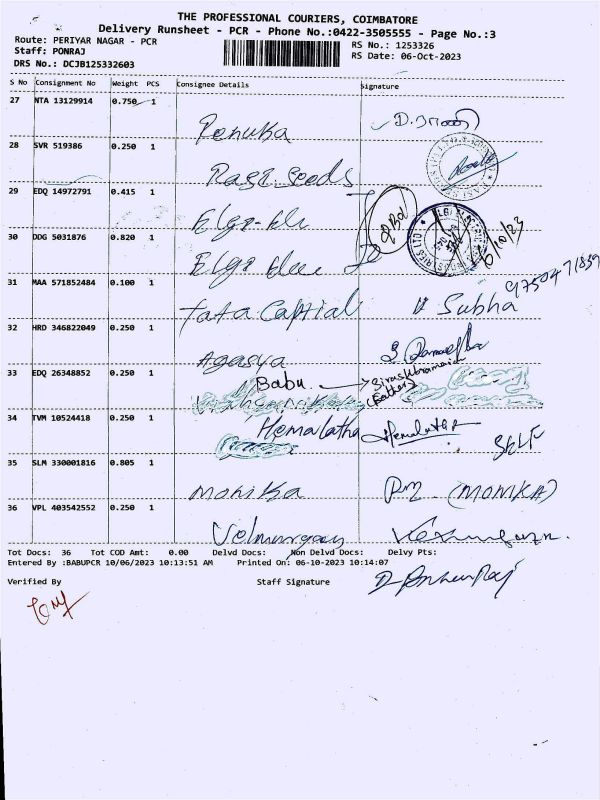 THE PROFESSIONAL COURIERS, COIMBATORE
Delivery Runsheet - PCR - Phone No.:0422-3505555 - Page No.:3
Route: PERIYAR NAGAR - PCR RS No.: 1253326
Staff: PONRAJ RS Date: 06-Oct-2023
DRS No.: DCJB125332603
S No Consignment No Weight PCS Consignee Details Signature
27 NTA 13129914 0.750 1
Renuka D. ராணி
28 SVR 519386 0.250 1
Ragi Seeds
29 EDQ 14972791 0.415 1
Elgi
30 DDG 5031876 0.820 1
Elgi 6/10/23
31 MAA 571852484 0.100 1
Tata Capital V Subha 9750471839
32 HRD 346822049 0.250 1
Agasya
33 EDQ 26348852 0.250 1
Babu. Sivasubramaniam
(Father)
34 TVM 10524418 0.250 1
Hemalatha Hemalatha SELF
35 SLM 330001816 0.805 1
Monika (MONIKA)
36 VPL 403542552 0.250 1
Velmurugan
Tot Docs: 36 Tot COD Amt: 0.00 Delvd Docs: Non Delvd Docs: Delvy Pts:
Entered By :BABUPCR 10/06/2023 10:13:51 AM Printed On: 06-10-2023 10:14:07
Verified By Staff Signature